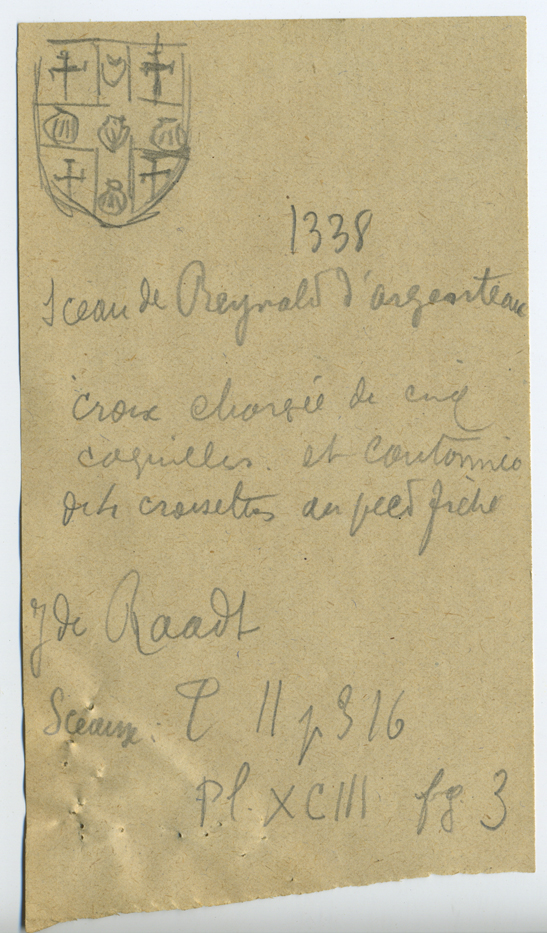 1338
Sceau de Reynald d'argenteau
croix chargée de cinq
coquilles et cantonnée
de 4 croisettes au pied fiché
J de Raadt
Sceaux. T II p 316
Pl. XCIII fg 3